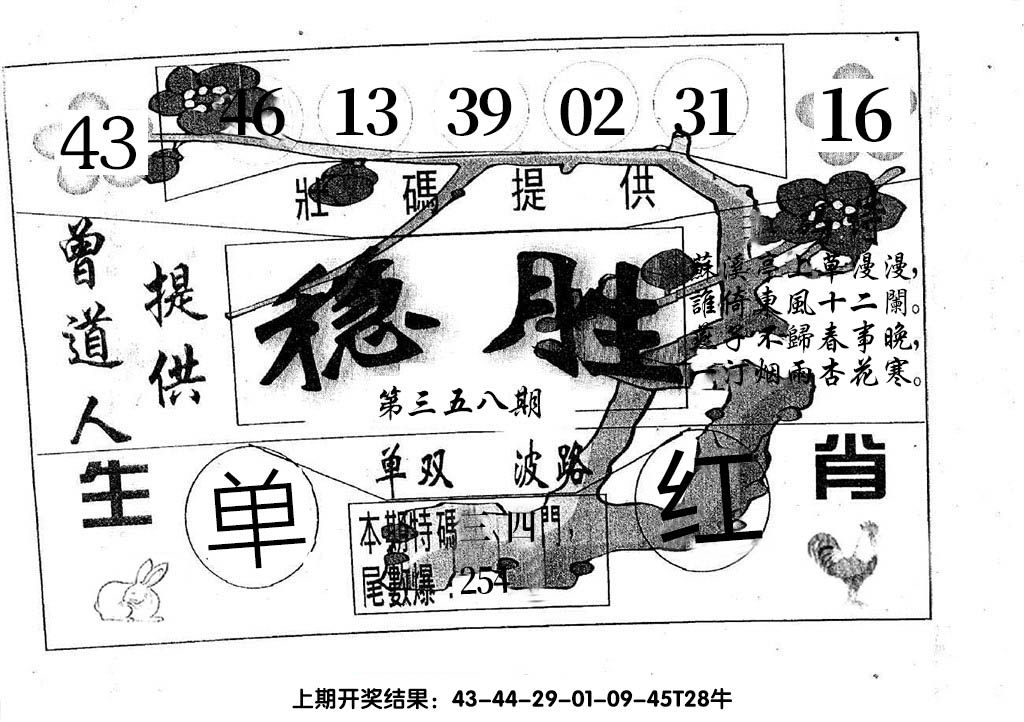 43 46 13 39 02 31 16
壯碼提供
特
曾道人
提供
稳胜
蘇溪亭上草漫漫，
誰倚東風十二闌。
燕子不歸春事晚，
一汀烟雨杏花寒。
第三五八期
单双 波路
生肖
单
红
本期特碼三、四門，
尾數爆：254
上期开奖结果：43-44-29-01-09-45T28牛